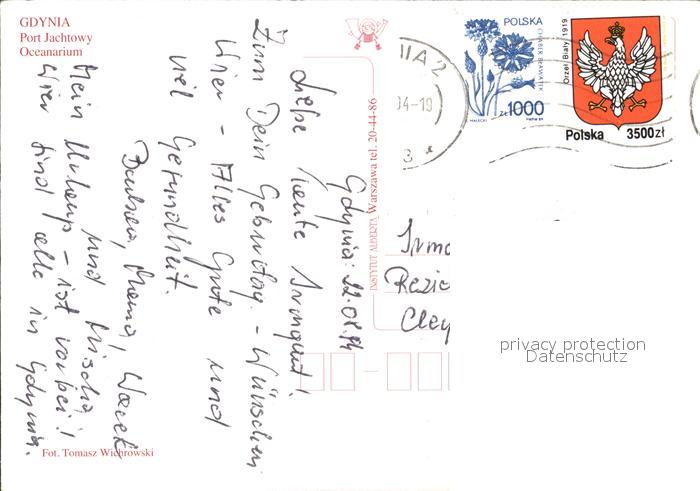 GDYNIA
Port Jachtowy
Oceanarium
Gdynia: 22.08.94
Liebe Tante Irmgard!
Zum Dein Geburtstag - Wünschen
Wier - Alles Gute und
viel Gesundheit.
Mama, Wacek
und Mischa
Mein Urlaup - ist vorbei!
Wier sind alle in Gdynia.
Fot. Tomasz Wichrowski
INSTYTUT ALBERTA Warszawa tel. 20-44-86
POLSKA
CHABER BŁAWATEK
ZŁ 1000
MALECKI
PWPW 89
Orzeł Biały 1919
Polska 3500zł
NIA 2
94-19
3 *
privacy protection
Datenschutz